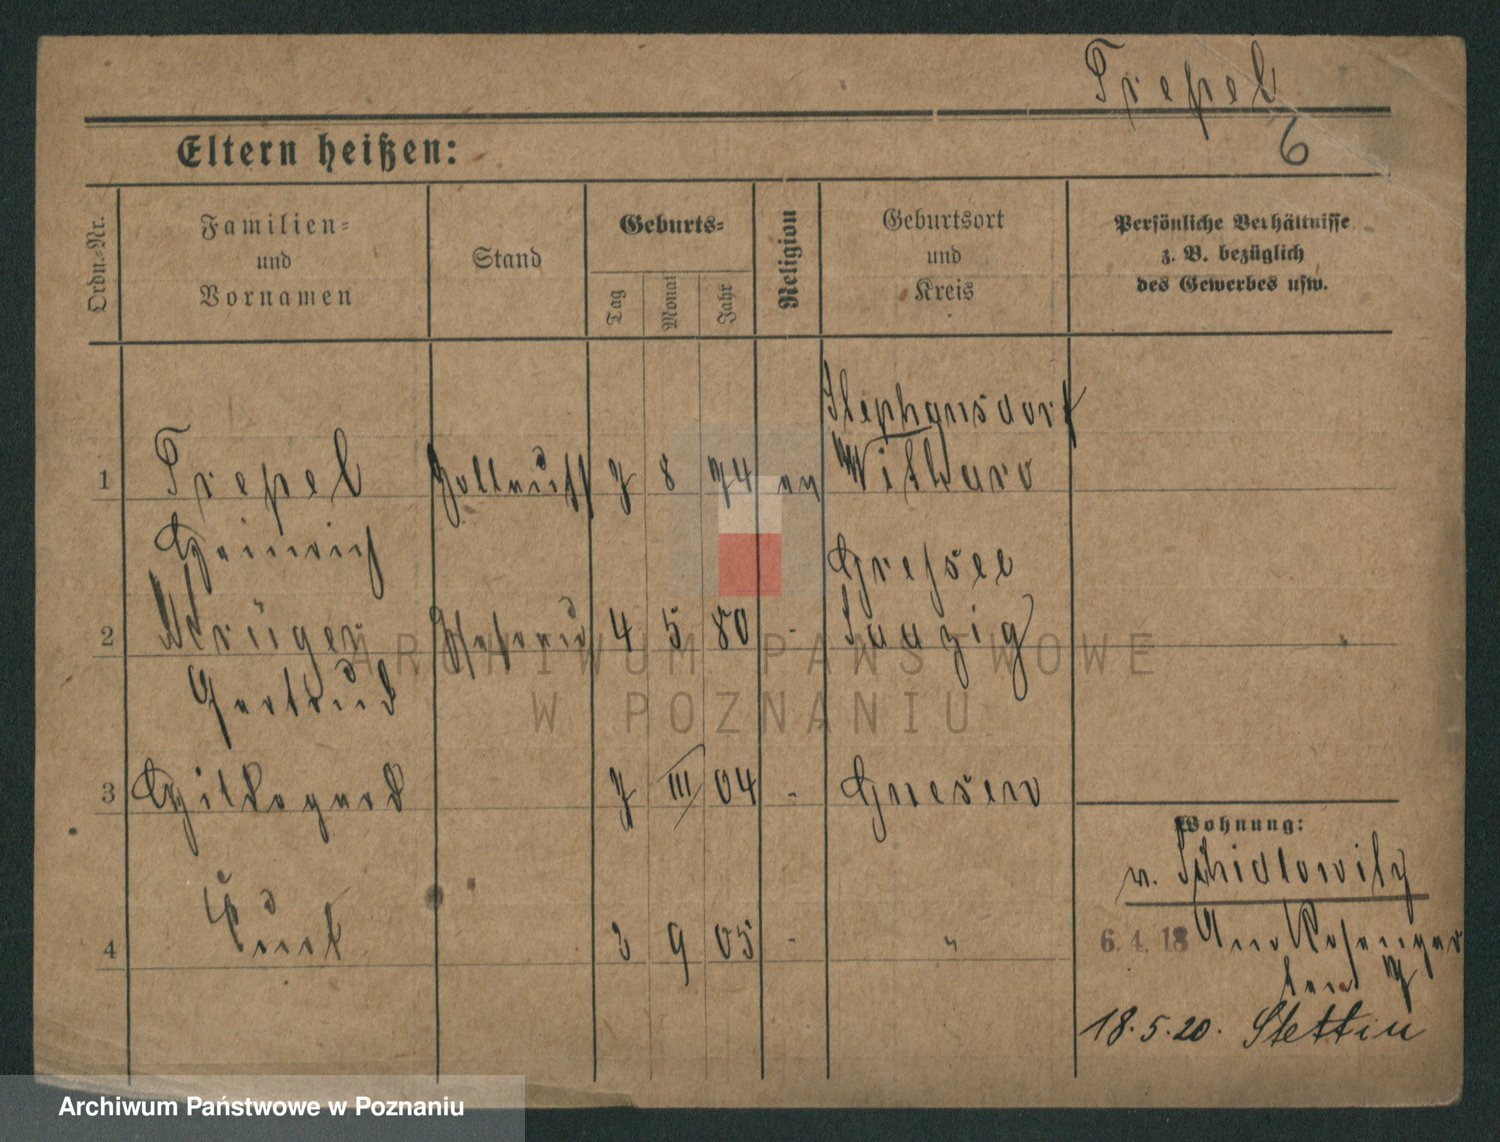 Trepel
6
Eltern heißen:
Ordn.-Nr.
Familien-
und
Vornamen
Stand
Geburts-
Tag
Monat
Jahr
Religion
Geburtsort
und
Kreis
Persönliche Verhältnisse
z. B. bezüglich
des Gewerbes usw.
Stephansdorf
1 Trepel 8 74 ev
Heinrich
2 Krüger Ehefrau 4 5 80 - Danzig
Gertrud
3 Hildegard III 04 - Gnesen
4 Kurt 3 9 05 - "
Wohnung:
v.
6. 4. 18 Am
18.5.20. Stettin
ARCHIWUM PAŃSTWOWE
W POZNANIU
Archiwum Państwowe w Poznaniu